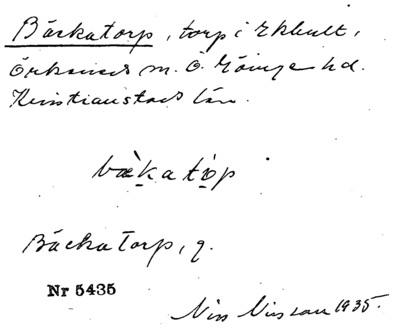 Bäckatorp, torp i Ekhult,
Örkeneds m. Ö. Göinge hd.
Kristianstads län.
bæ̀kato̱p
Bäckatorp, g.
Nr 5435
Nils Nilsson 1935.